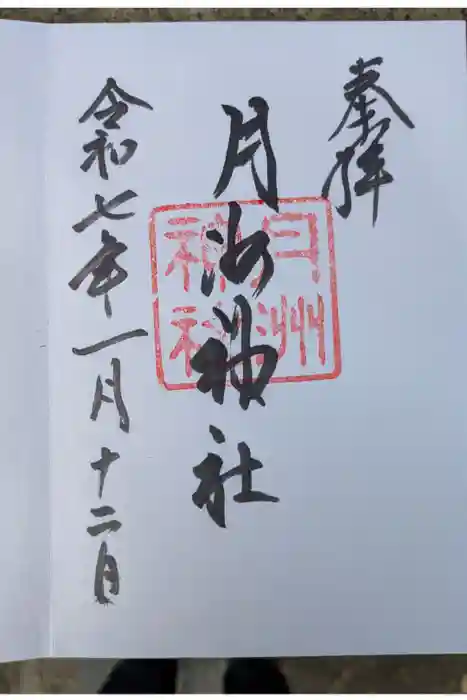 奉拝
月洲神社
月洲
神社
令和七年一月十二日